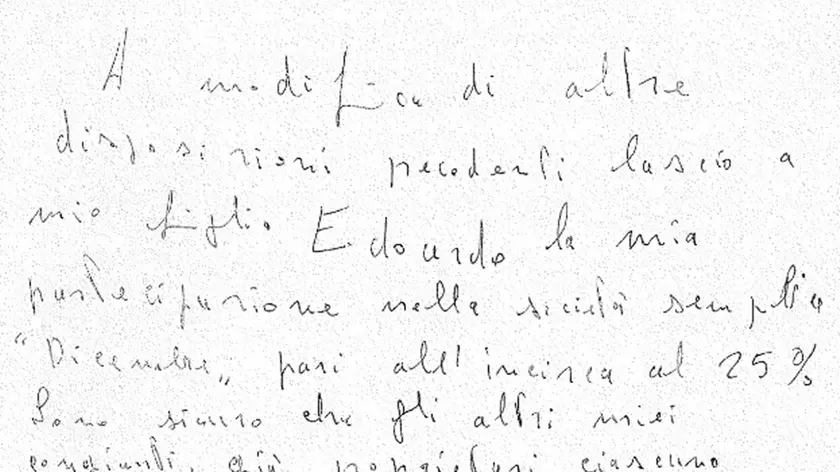 A modifica di altre
disposizioni pecedenti lascio a
mio figlio Edoardo la mia
partecipazione nella società semplice
"Dicembre„ pari all'incirca al 25%
Sono sicuro che gli altri miei
congiunti, già proprietari ciascuno